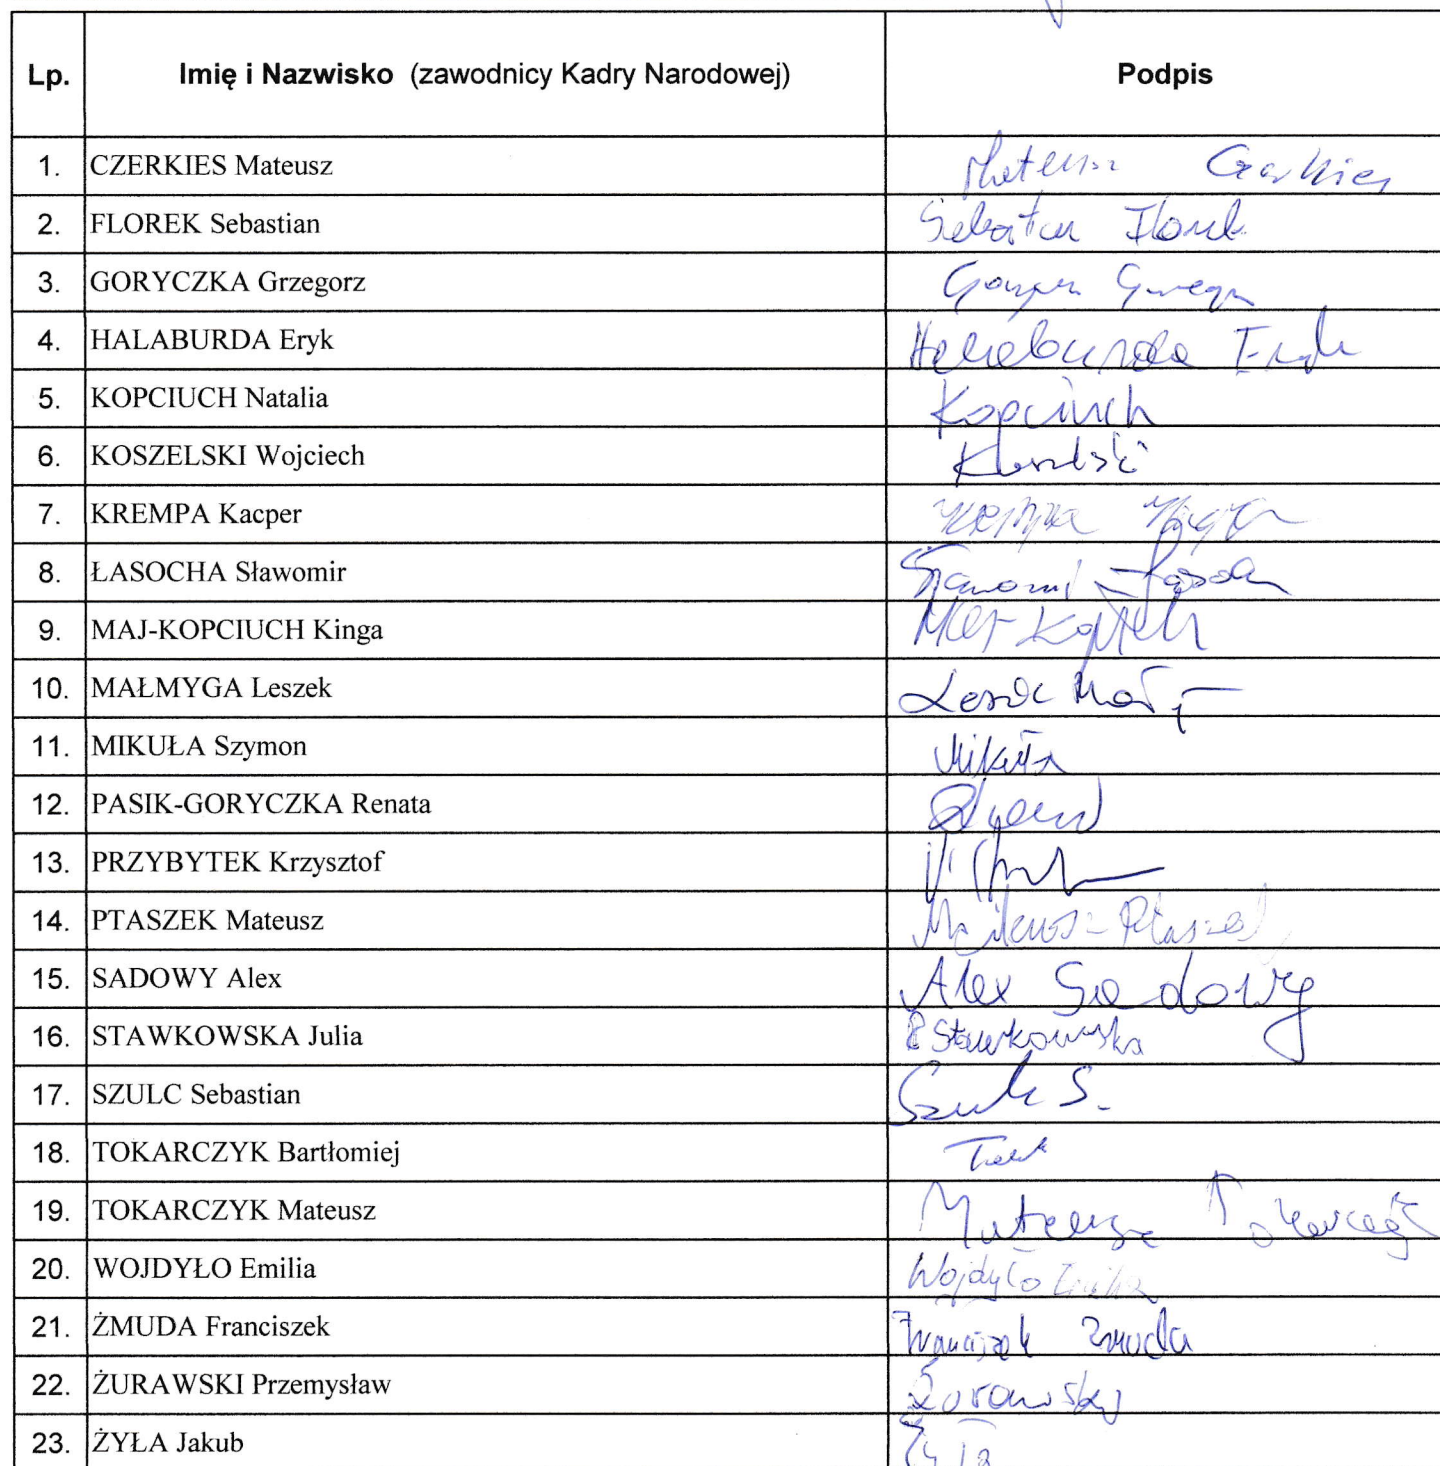 Lp. Imię i Nazwisko (zawodnicy Kadry Narodowej) Podpis
1. CZERKIES Mateusz Mateusz Czerkies
2. FLOREK Sebastian Sebastian Florek
3. GORYCZKA Grzegorz
4. HALABURDA Eryk Halaburda Eryk
5. KOPCIUCH Natalia Kopciuch
6. KOSZELSKI Wojciech
7. KREMPA Kacper
8. ŁASOCHA Sławomir
9. MAJ-KOPCIUCH Kinga
10. MAŁMYGA Leszek
11. MIKUŁA Szymon Mikuła
12. PASIK-GORYCZKA Renata
13. PRZYBYTEK Krzysztof
14. PTASZEK Mateusz Mateusz Ptaszek
15. SADOWY Alex Alex Sadowy
16. STAWKOWSKA Julia Stawkowska
17. SZULC Sebastian Szulc S.
18. TOKARCZYK Bartłomiej
19. TOKARCZYK Mateusz Mateusz Tokarczyk
20. WOJDYŁO Emilia Wojdyło Emilia
21. ŻMUDA Franciszek Franciszek Żmuda
22. ŻURAWSKI Przemysław Żurawski
23. ŻYŁA Jakub Żyła